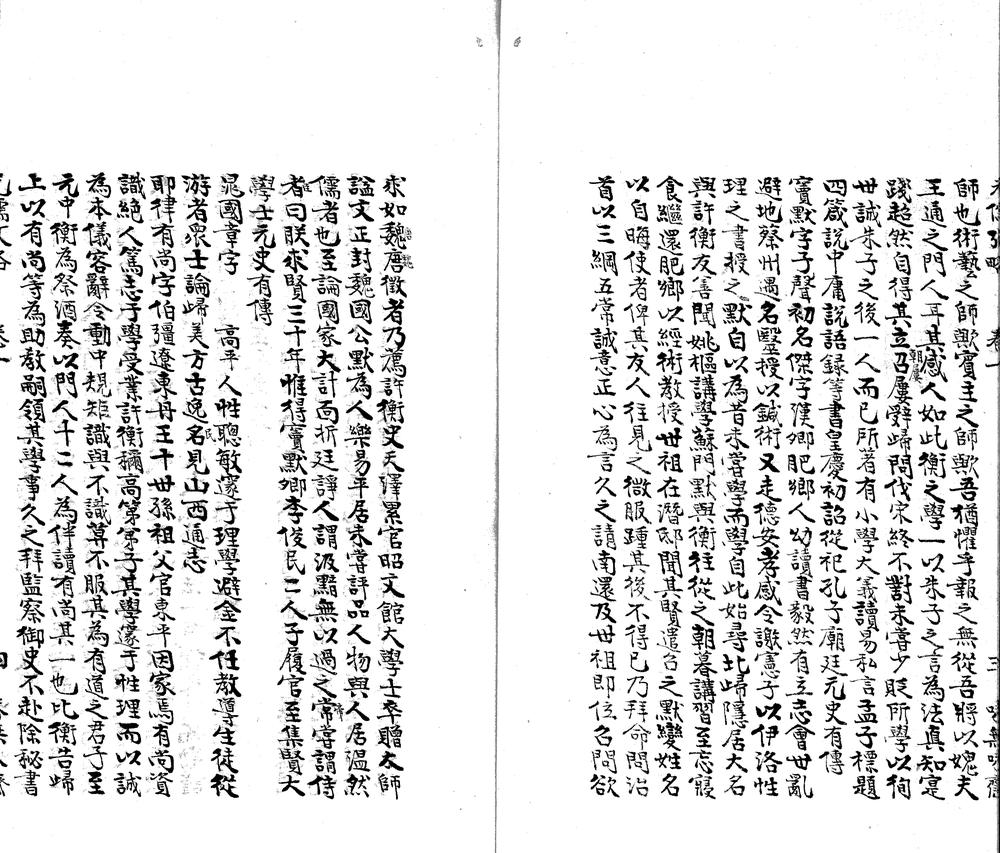 師也術藝之師歟賓主之師歟吾猶懼乎報之無從吾將以媿夫
王通之門人耳其感人如此衡之學一以朱子之言為法真知寔
踐超然自得其立朝屢召屢辭歸問伐宋終不對未嘗少貶所學以徇
世誠朱子之後一人而已所著有小學大義讀易私言孟子標題
四箴說中庸說語錄等書皇慶初詔從祀孔子廟廷元史有傳
竇默字子聲初名傑字漢卿肥鄉人幼讀書毅然有立志會世亂
避地蔡州遇名醫授以鍼術又走德安孝感令謝憲子以伊洛性
理之書授之默自以為昔未嘗學而學自此始尋北歸隱居大名
與許衡友善聞姚樞講學蘇門默與衡往從之朝暮講習至忘寢
食繼還肥鄉以經術教授世祖在潛邸聞其賢遣召之默變姓名
以自晦使者俾其友人往見之微服踵其後不得已乃拜命問治
首以三綱五常誠意正心為言久之請南還及世祖即位名問欲
求如魏徵者乃薦許衡史天澤累官昭文館大學士卒贈太師
諡文正封魏國公默為人樂易平居未嘗評品人物與人居溫然
儒者也至論國家大計面折廷諍人謂汲黯無以過之帝嘗謂侍
者曰朕求賢三十年惟得竇默卿李俊民二人子履官至集賢大
學士元史有傳
晁國章字　高平人性聰敏邃于理學避金不仕教導生徒從
游者眾士論歸美方古逸民名見山西通志
耶律有尚字伯彊遼東丹王十世孫祖父官東平因家焉有尚資
識絕人篤志于學受業許衡稱高第弟子其學邃于性理而以誠
為本儀容辭令動中規矩識與不識莫不服其為有道之君子至
元中衡為祭酒奏以門人十二人為伴讀有尚其一也比衡告歸
上以有尚等為助教嗣領其學事久之拜監察御史不赴除秘書